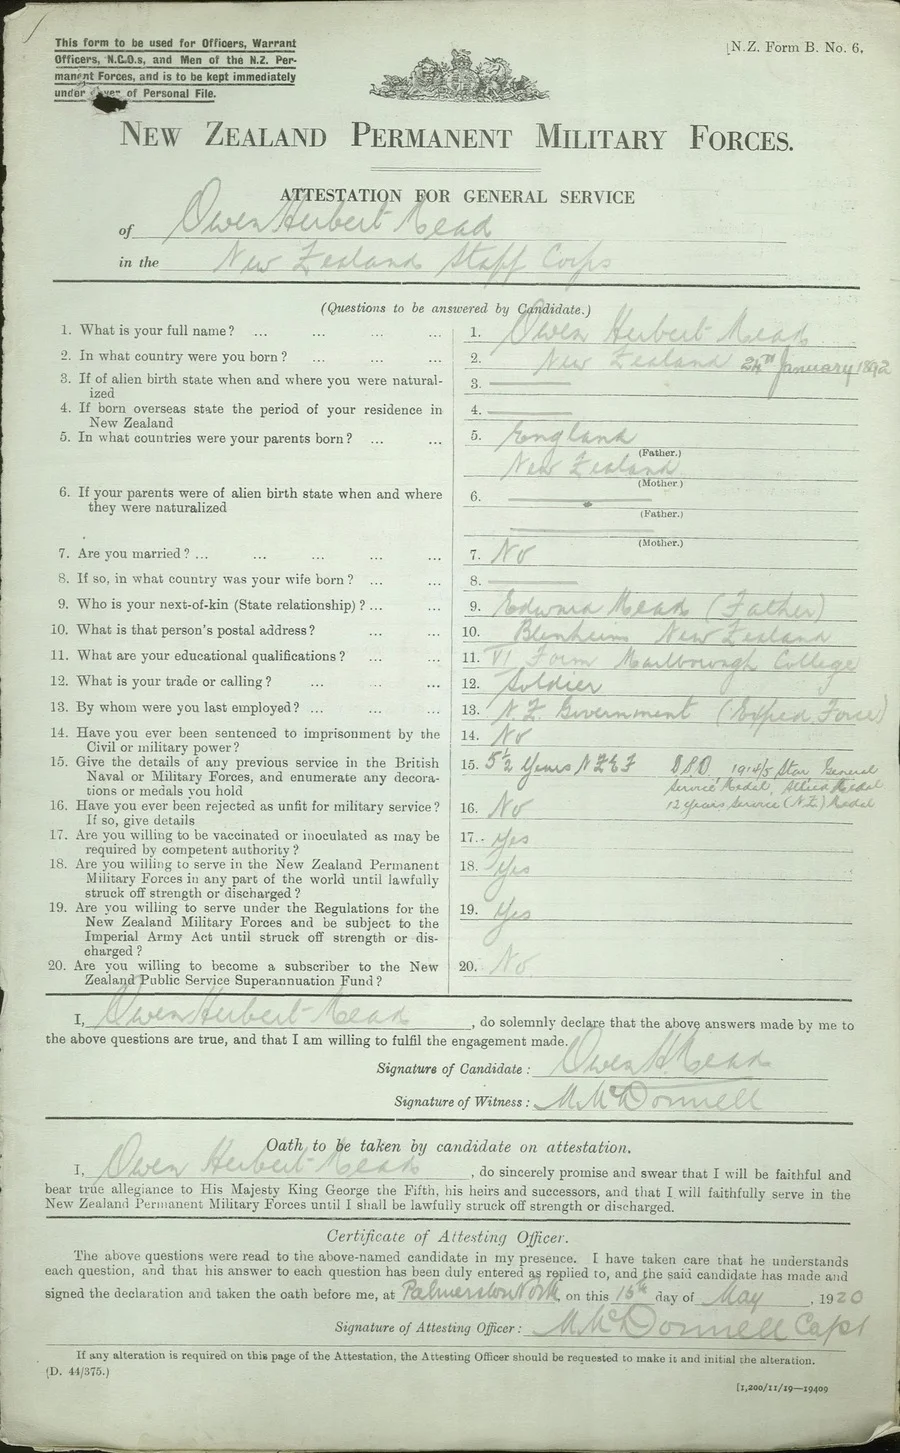 This form to be used for Officers, Warrant
Officers, N.C.O.s, and Men of the N.Z. Per-
manent Forces, and is to be kept immediately
under cover of Personal File.
N.Z. Form B. No. 6.
NEW ZEALAND PERMANENT MILITARY FORCES.
ATTESTATION FOR GENERAL SERVICE
of Owen Herbert Mead
in the New Zealand Staff Corps
(Questions to be answered by Candidate.)
1. What is your full name? ... ... ... ... 1. Owen Herbert Mead
2. In what country were you born? ... ... ... 2. New Zealand 24th January 1892
3. If of alien birth state when and where you were natural-
ized 3.
4. If born overseas state the period of your residence in
New Zealand 4.
5. In what countries were your parents born? ... ... 5. England
(Father.)
New Zealand
(Mother.)
6. If your parents were of alien birth state when and where
they were naturalized 6.
(Father.)
(Mother.)
7. Are you married? ... ... ... ... ... 7. No
8. If so, in what country was your wife born? ... ... 8.
9. Who is your next-of-kin (State relationship)? ... ... 9. Edward Mead (Father)
10. What is that person's postal address? ... ... 10. Blenheim New Zealand
11. What are your educational qualifications? ... ... 11. VI Form Marlborough College
12. What is your trade or calling? ... ... ... 12. Soldier
13. By whom were you last employed? ... ... ... 13. N.Z. Government (Exped. Force)
14. Have you ever been sentenced to imprisonment by the
Civil or military power? 14. No
15. Give the details of any previous service in the British
Naval or Military Forces, and enumerate any decora-
tions or medals you hold
15. 5½ Years N.Z.E.F D.S.O. 1914/5 Star General
Service Medal, Allied Medal
12 Years Service (N.Z.) Medal
16. Have you ever been rejected as unfit for military service?
If so, give details 16. No
17. Are you willing to be vaccinated or inoculated as may be
required by competent authority? 17. Yes
18. Are you willing to serve in the New Zealand Permanent
Military Forces in any part of the world until lawfully
struck off strength or discharged? 18. Yes
19. Are you willing to serve under the Regulations for the
New Zealand Military Forces and be subject to the
Imperial Army Act until struck off strength or dis-
charged? 19. Yes
20. Are you willing to become a subscriber to the New
Zealand Public Service Superannuation Fund? 20. No
I, Owen Herbert Mead, do solemnly declare that the above answers made by me to
the above questions are true, and that I am willing to fulfil the engagement made.
Signature of Candidate: Owen H. Mead
Signature of Witness: M McDonnell
Oath to be taken by candidate on attestation.
I, Owen Herbert Mead, do sincerely promise and swear that I will be faithful and
bear true allegiance to His Majesty King George the Fifth, his heirs and successors, and that I will faithfully serve in the
New Zealand Permanent Military Forces until I shall be lawfully struck off strength or discharged.
Certificate of Attesting Officer.
The above questions were read to the above-named candidate in my presence. I have taken care that he understands
each question, and that his answer to each question has been duly entered as replied to, and the said candidate has made and
signed the declaration and taken the oath before me, at Palmerston North, on this 15th day of May, 1920
Signature of Attesting Officer: M McDonnell Capt
If any alteration is required on this page of the Attestation, the Attesting Officer should be requested to make it and initial the alteration.
(D. 44/375.)
[1,200/11/19—19409